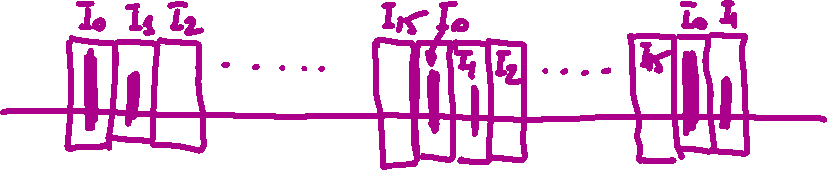 I₀ I₁ I₂ ..... I₁₅ I₀ I₁ I₂ ..... I₁₅ I₀ I₁